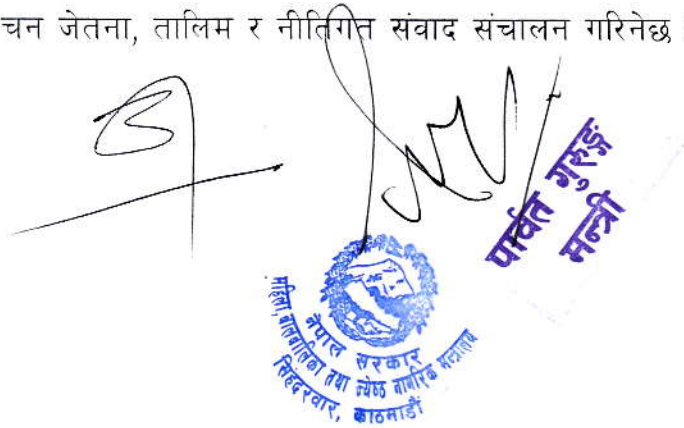 चन जेतना, तालिम र नीतिगत संवाद संचालन गरिनेछ
पार्वत गुरुङ्ग
मन्त्री
नेपाल सरकार
महिला, बालबालिका तथा ज्येष्ठ नागरिक मन्त्रालय
सिंहदरवार, काठमाडौं